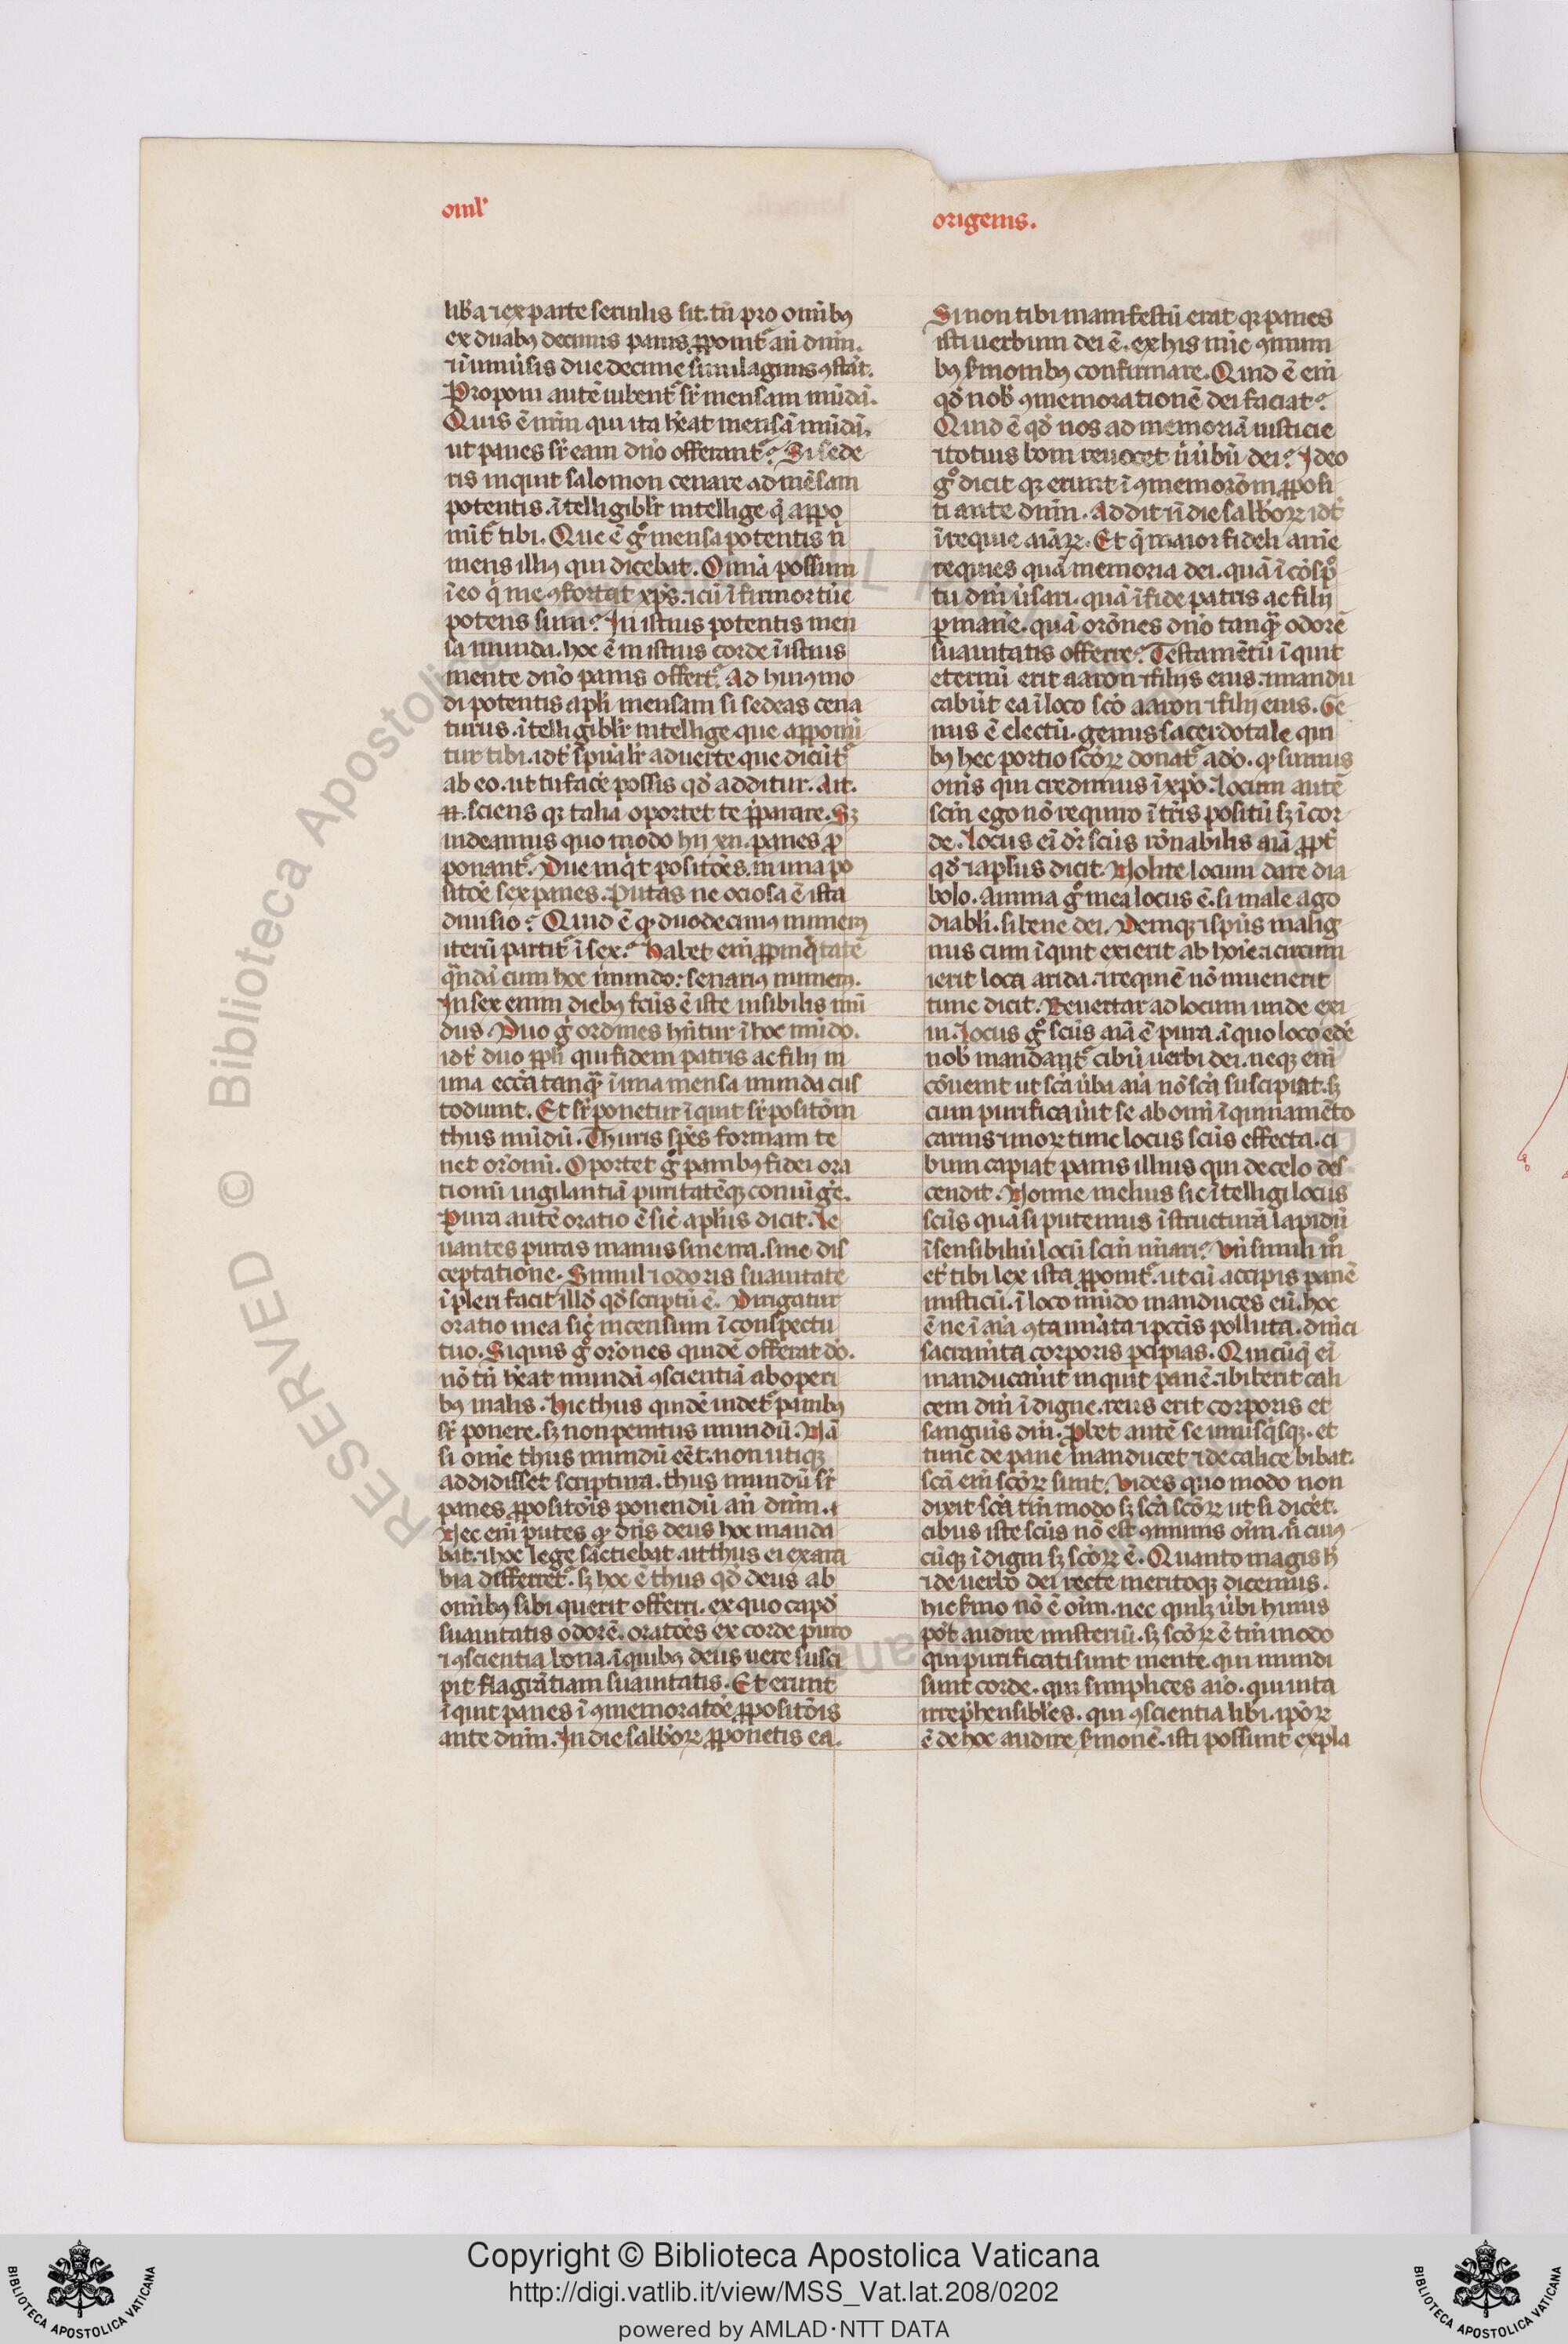 omł'
origenis.
lib'a ⁊ ex parte seruilis sit. tn̄ pro omībꝫ
ex duabꝫ decimis panis ꝓponit᷑ añ dnm̄.
⁊ ī humil'is due decime similaginis ꝯstāt.
Proponi autē iubent᷑ sr̄ mensam mūdā.
Quis ē nrm̄ qui ita h̄eat mensā mūdā.
ut panes sr̄ eam dn̄o offerant᷑? Si sede
ris inquit salomon cenare ad mēsam
potentis. ītelligibilr̄ intellige q̄ appo
nūt᷑ tibi. Que ē gͦ mensa potentis n̄
mens illiꝰ qui dicebat. Omīa possum
ī eo q̄ me ꝯfortat xp̄s. ⁊ cū īfirmor tūc
potens sum? In istius potentis men
sa munda. hoc ē in istius corde ī istius
mente dn̄o panis offert᷑. Ad huiꝰmo
di potentis apl̄i mensam si sedeas cena
turus. ītelligibilr̄ intellige que apponū
tur tibi. idē sp̄ualr̄ aduerte que dicūt᷑
ab eo. ut tu facē possis qd̄ additur. Ait.
.n. sciens qꝫ talia oportet te p̄parare. Sꝫ
uideamus quo modo hij xii. panes ꝓ
ponant᷑. Due inq̄t positōes. in una po
sitōe sex panes. Putas ne ociosa ē ista
diuisio? Quid ē qꝫ duodecimꝰ numerꝰ
iterū partit᷑ ī sex? Habet em̄ ꝓpinq̄tatē
q̄ndā cum hoc mundo: senariꝰ numerꝰ.
In sex enim diebꝫ fc̄us ē iste uisibilis mū
dus. Duo gͦ ordines hn̄tur ī hoc mūdo.
idē duo ppl̄i qui fidem patris ac filij in
una ecc̄a tanq̄ ī una mensa munda cus
todiunt. Et sr̄ponetur īquit sr̄ positōm
thus mūdū. Thuris sp̄es formam te
net or̄onū. Oportet gͦ panibꝫ fidei ora
tionū uigilantiā puritatēqꝫ coniūgē.
Pura autē oratio ē sic̄ aplūs dicit. Le
uantes puras manus sine ira. sine dis
ceptatione. Simul ⁊ odoris suauitate
īpleri facit illd̄ qd̄ scriptū ē. Dirigatur
oratio mea sic̄ incensum ī conspectu
tuo. Si quis gͦ or̄ones quidē offerat dō.
nō tn̄ h̄eat mundā ꝯscientiā ab operi
bꝫ malis. hic thus quidē uidet᷑ panibꝫ
sr̄ ponere. sꝫ non penitus mundū. Nā
si om̄e thus mundū eēt. non utiqꝫ
addidisset scriptura. thus mundū sr̄
panes ꝓpositōis ponendū añ dnm̄.
Nec em̄ putes qꝫ dn̄s deus hoc manda
bat. ⁊ hoc lege sāctiebat. ut thus ei ex ara
bia differret᷑. sꝫ hoc ē thus qd̄ deus ab
omībꝫ sibi querit offerri. ex quo capd̄
suauitatis odorē. oratōes ex corde puro
⁊ ꝯscientia bona. ī quibꝫ deus uere susci
pit flagrātiam suauitatis. Et erunt
īquit panes ī ꝯmemoratōe ꝓpositōis
ante dnm̄. In die sabbōꝝ ꝓponetis ea.
Si non tibi manifestū erat qꝫ panes
isti uerbum dei ē. ex his nūc ꝯmuni
bꝫ s̄monibꝫ confirmare. Quid ē em̄
qd̄ nob̄ ꝯmemorationē dei faciat?
Quid ē qd̄ nos ad memoriā iusticie
⁊ totius boni reuocet n̄ ūbū dei? Ideo
gͦ dicit qꝫ erunt ī ꝯmemorōm ꝓposi
ti ante dnm̄. Addit n̄ die sabbōꝝ idē
ī requie aīaꝝ. Et q̄ maior fideli anīe
requies quā memoria dei. quā ī cōspc̄
tu dnī ūsari. quā ī fide patris ac filij
ꝑmanē. quā or̄ones dn̄o tanq̄ odorē
suauitatis offerre? Testamētū īquit
eternū erit aaron ⁊ filijs eius. ⁊ mandu
cabūt ea ī loco scō aaron ⁊ filij eius. Ge
nus ē electū. genus sacerdotale qui
bꝫ hec portio scōꝝ donat᷑ a dō. qꝫ sumus
om̄s qui credimus ī xpō. Locum autē
scm̄ ego nō requiro ī tr̄is positū sꝫ ī cor
de. Locus ei dr̄ scūs rōnabilis aīa ꝓpt̄
qd̄ ⁊ aplūs dicit. Nolite locum dare dia
bolo. Anima gͦ mea locus ē. si male ago
diabl̄i. si bene dei. Deniqꝫ ⁊ sp̄us malig
nus cum īquit exierit ab hoīe. ⁊ circum
ierit loca arida. ⁊ requiē nō inuenerit
tunc dicit. Reuertar ad locum unde exi
ui. Locus gͦ scūs aīa ē pura. ī quo loco edē
nob̄ mandant᷑ cibū uerbi dei. neqꝫ em̄
cōuenit ut scā ūba aīa nō scā suscipiat. sꝫ
cum purificaūit se ab omī īquinamēto
carnis ⁊ moꝝ tunc locus scūs effecta. ci
bum capiat panis illius qui de celo des
cendit. Nonne melius sic ītelligi locus
scūs quā si putemus īstructurā lapidū
īsensibiliū locū scm̄ nīari? Vn̄ simili mͦ
et tibi lex ista ꝓponit᷑. ut cū accipis panē
misticū. ī loco mūdo manduces eū. hoc
ē ne ī aīa ꝯtamīata ⁊ pccīs polluta. dnīci
sacramīta corporis ꝑcipias. Quicūqꝫ ei
manducaūit inquit panē. ⁊ biberit cali
cem dnī īdigne. reus erit corporis et
sanguis dnī. Ꝓbet autē se unusq̄sqꝫ. et
tunc de pane manducet ⁊ de calice bibat.
Scā em̄ scōꝝ sunt. Vides quo modo non
dixit scā tm̄ modo sꝫ scā scōꝝ ut si dicēt.
cibus iste scūs nō est ꝯmunis oīm. n̄ cuiꝰ
cūqꝫ īdigni sꝫ scōꝝ ē. Quanto magis h̄
⁊ de uerbo dei recte meritoqꝫ dicemus.
hic s̄mo nō ē oīm. nec quilꝫ ūbi huius
pōt audire misteriū. sꝫ scōꝝ ē tm̄ modo
qui purificati sunt mente. qui mundi
sunt corde. qui simplices aīo. qui uita
irrep̄hensibiles. qui ꝯscientia lib̄i. ip̄oꝝ
ē de hoc audire s̄monē. isti possunt expla
RESERVED © Biblioteca Apostolica Vaticana
Copyright © Biblioteca Apostolica Vaticana
http://digi.vatlib.it/view/MSS_Vat.lat.208/0202
powered by AMLAD·NTT DATA
BIBLIOTECA APOSTOLICA VATICANA
BIBLIOTECA APOSTOLICA VATICANA